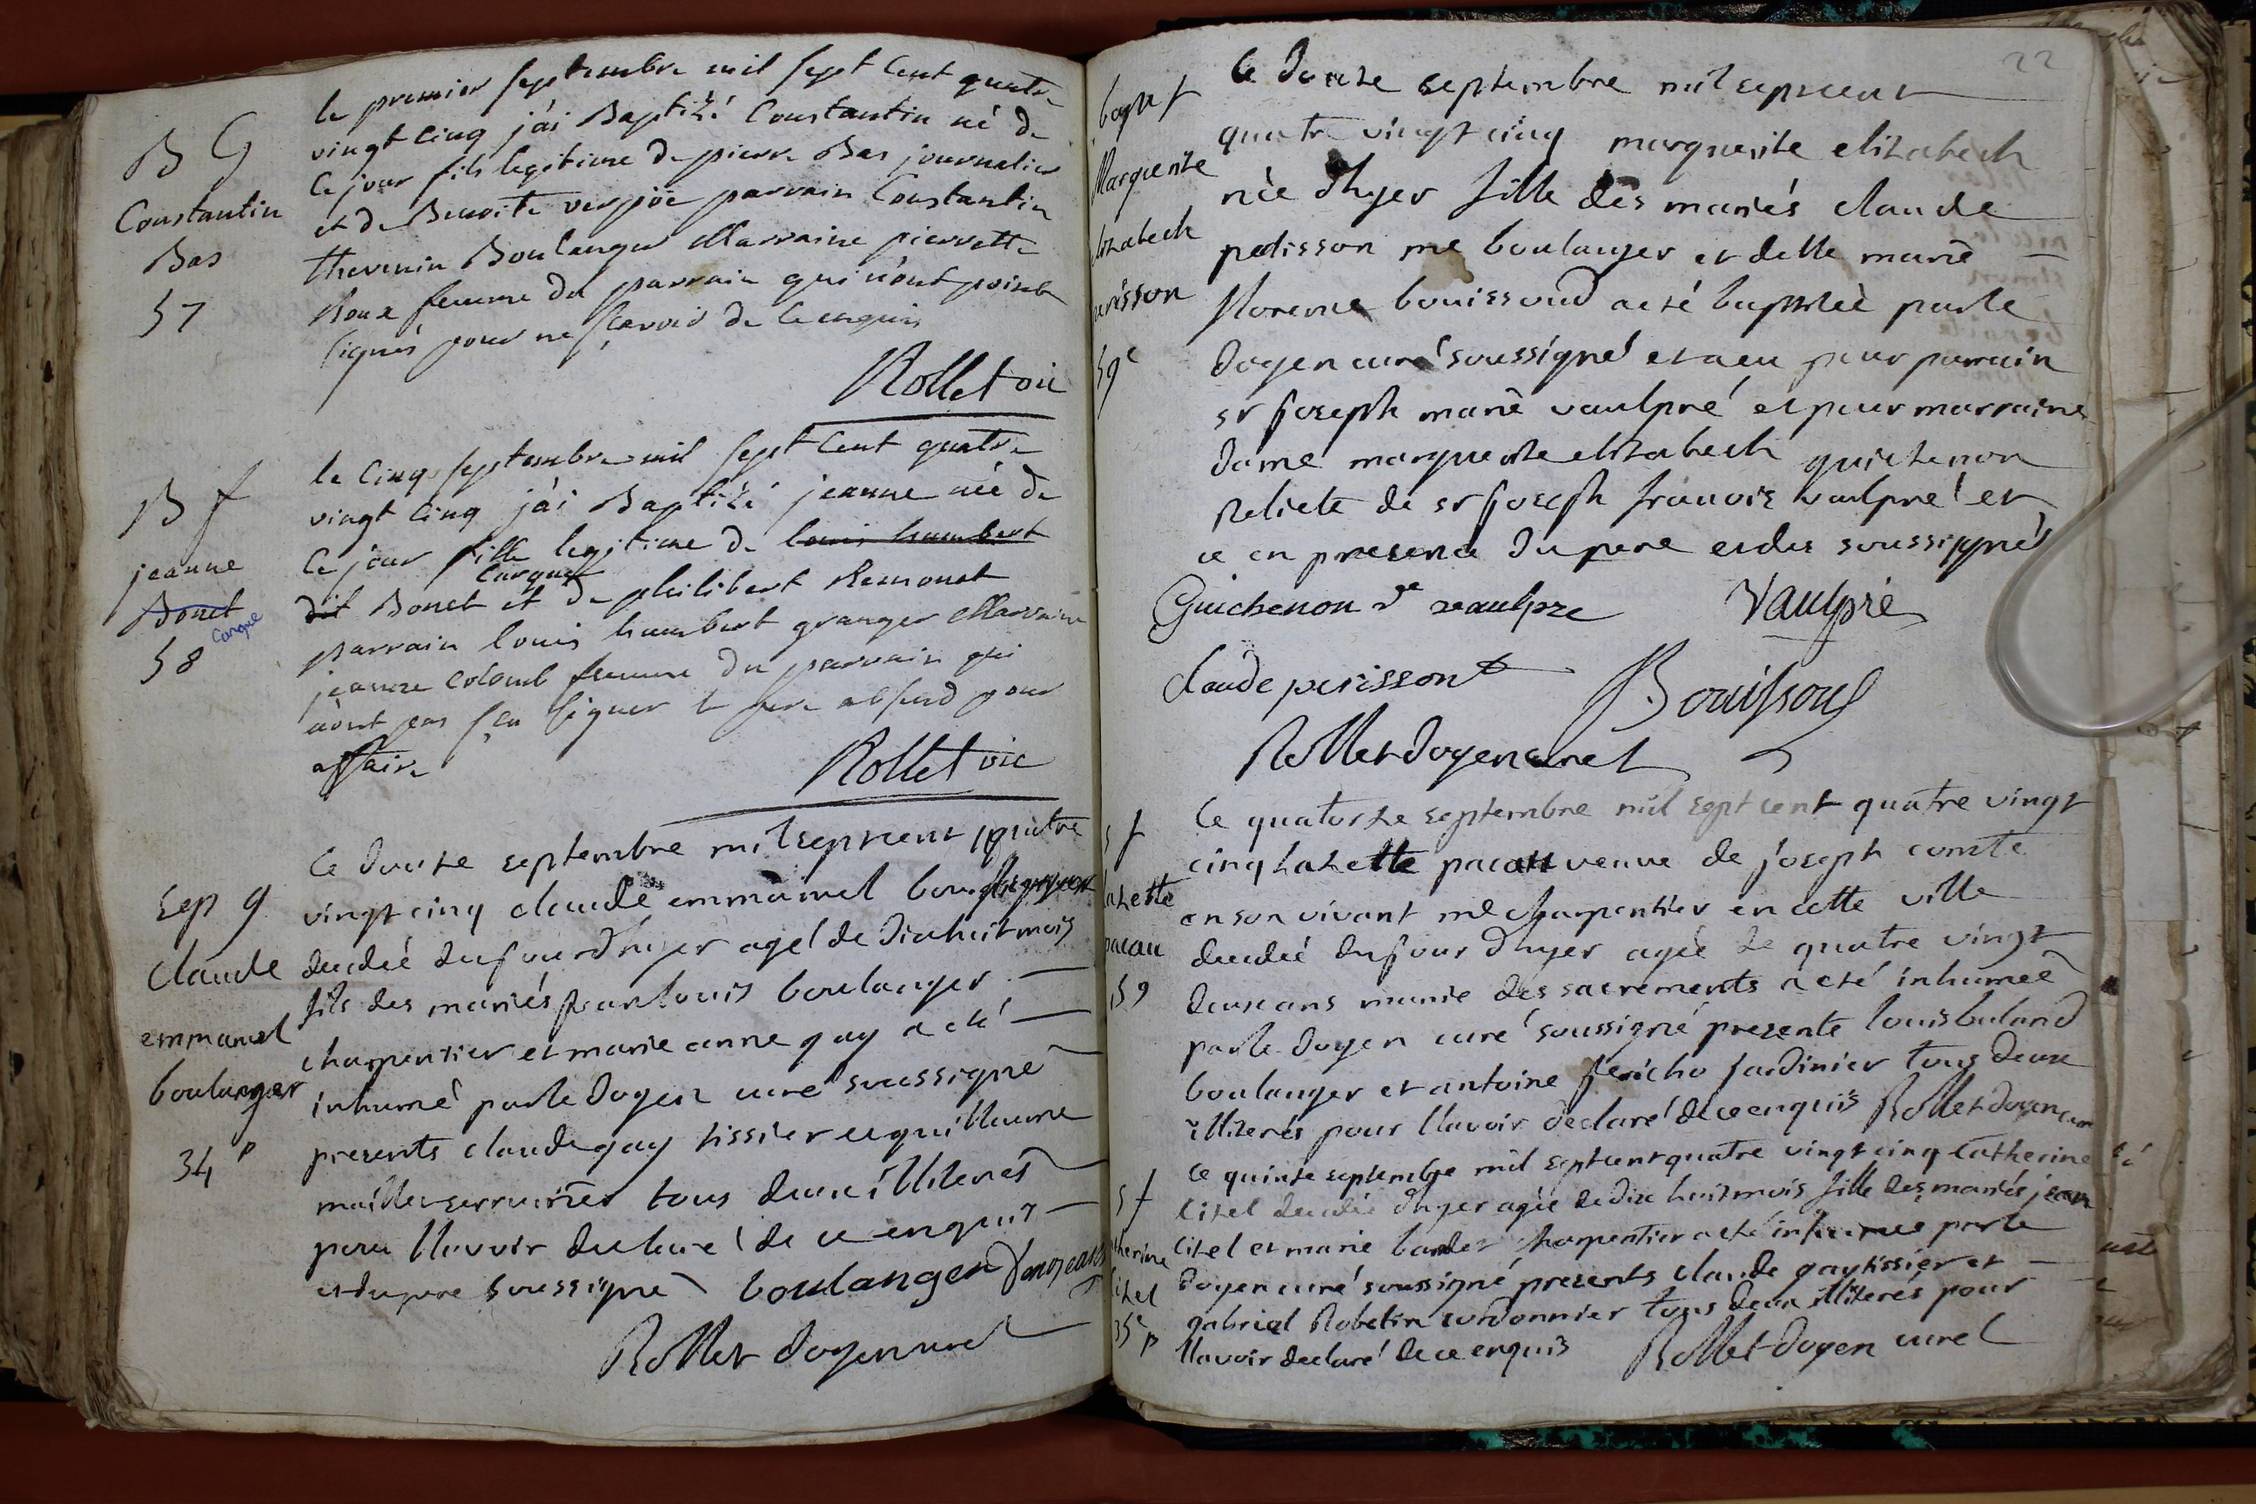 B G
Constantin
Bas
57
le premier septembre mil sept Cent quatre
vingt Cinq j'ai Baptisé Constantin né de
Ce jour fils legitime de pierre Bas journalier
et de Benoite verjoë parrain Constantin
thevenin Boulanger Marraine pierrette
Roux femme du parrain qui n'ont point
signés pour ne sçavoir de Ce enquis
Rollet vic
B f
jeanne
Bonet
Carque
58
le Cinq septembre mil sept Cent quatre
vingt Cinq j'ai Baptisé jeanne née de
Ce jour fille legitime de louis humbert
Carque
dit Bonet et de philibert Remonet
parrain louis humbert granger Marraine
jeanne Colomb femme du parrain qui
n'ont pas sçu signer le pere absend pour
affaire
Rollet vic
Sep g
Claude
emmanuel
boulanger
34 p
Ce douze septembre mil sept cent quatre
vingt cinq claude emmanuel boulanger
decedé du jour d'hyer agé de dixhuit mois
fils des mariés jean louis boulanger
charpentier et marie anne gay a eté
inhumé par le doyen curé soussigné
presents claude gay tissier et guillaume
maillet serrurier tous deux illiterés
pour l'avoir declaré de ce enquis
et du pere soussigné boulanger
Rollet doyen curé
22
bapt f
Marguerite
elizabeth
perisson
59e
Ce douze septembre mil sept cent
quatre vingt cinq marguerite elizabeth
née d'hyer fille des mariés claude
perisson me boulanger et delle marie
florence bouissoud a eté baptisée par le
doyen curé soussigné et a eu pour parrain
sr joseph marie vaulpré et pour marraine
dame marguerite elizabeth guichenon
Relicte de sr joseph francois vaulpré et
ce en presence du pere et des soussignés
Guichenon ve vaulpre Vaulpré
Claude perisson Bouissoud
Rollet doyen curé
s f
lazette
pacau
59
Ce quatorze septembre mil sept cent quatre vingt
cinq lazette pacau veuve de joseph comte
en son vivant me charpentier en cette ville
decedée du jour d'hyer agée de quatre vingt
deux ans munie des sacrements a eté inhumée
par le doyen curé soussigné presents louis buland
boulanger et antoine jericho jardinier tous deux
illiterés pour l'avoir declaré de ce enquis Rollet doyen curé
s f
catherine
litel
35e p
Ce quinze septembre mil sept cent quatre vingt cinq Catherine
litel decedée d'hyer agée de dix huit mois fille des mariés jean
litel et marie bardet charpentier a eté inhumée par le
doyen curé soussigné presents claude gay tissier et
gabriel Robelin cordonnier tous deux illiterés pour
l'avoir declaré de ce enquis Rollet doyen curé